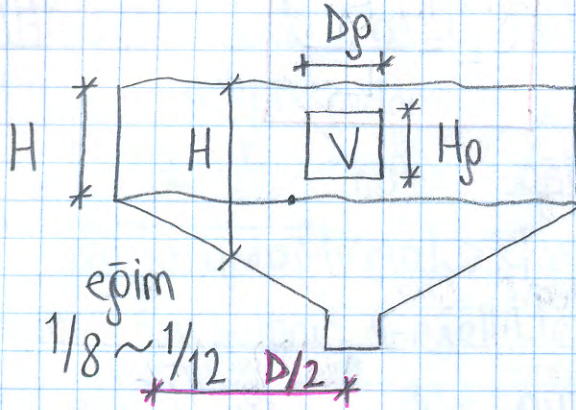 Dρ
H
H
V
Hρ
eğim
1/8 ~ 1/12
D/2